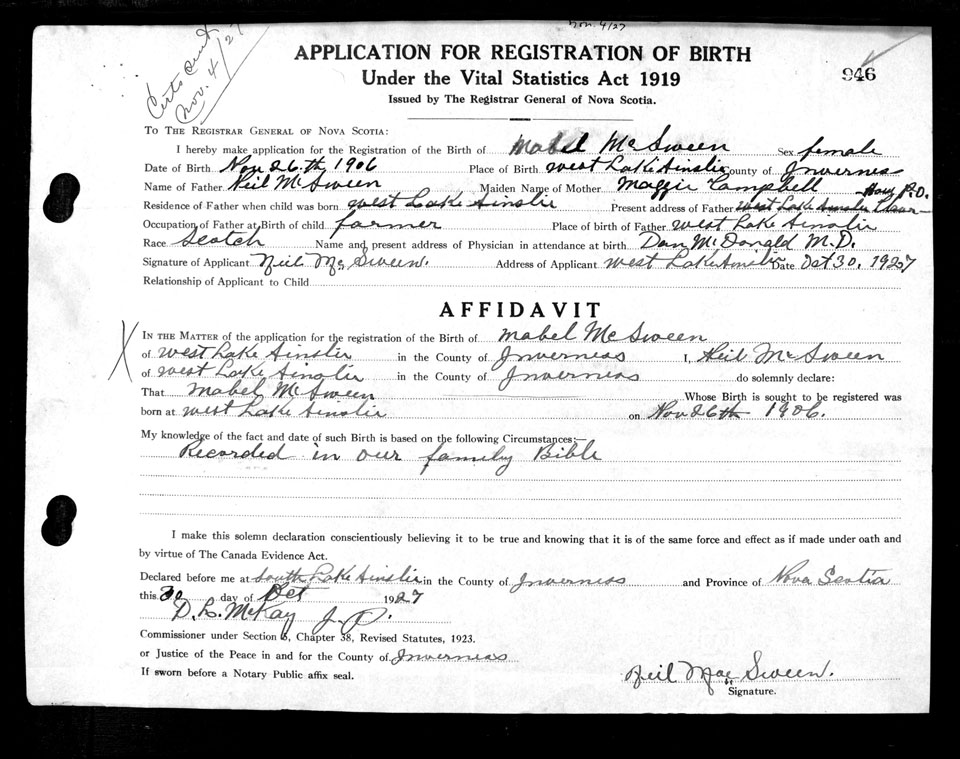 Nov. 4/27
Certs sent
Nov. 4/27
APPLICATION FOR REGISTRATION OF BIRTH
Under the Vital Statistics Act 1919
946
Issued by The Registrar General of Nova Scotia.
TO THE REGISTRAR GENERAL OF NOVA SCOTIA:
I hereby make application for the Registration of the Birth of Mabel McSween Sex female
Date of Birth Nov 26th 1906 Place of Birth West Lake Ainslie County of Inverness
Name of Father Neil McSween Maiden Name of Mother Maggie Campbell
Residence of Father when child was born West Lake Ainslie Present address of Father West Lake Ainslie
Occupation of Father at Birth of child farmer Place of birth of Father West Lake Ainslie
Race Scotch Name and present address of Physician in attendance at birth Dan McDonald M.D.
Signature of Applicant Neil McSween. Address of Applicant West Lake Ainslie Date Oct 30, 1927
Relationship of Applicant to Child
AFFIDAVIT
IN THE MATTER of the application for the registration of the Birth of Mabel McSween
of West Lake Ainslie in the County of Inverness I, Neil McSween
of West Lake Ainslie in the County of Inverness do solemnly declare:
That Mabel McSween Whose Birth is sought to be registered was
born at West Lake Ainslie on Nov 26th 1906.
My knowledge of the fact and date of such Birth is based on the following Circumstances:—
Recorded in our family Bible
I make this solemn declaration conscientiously believing it to be true and knowing that it is of the same force and effect as if made under oath and
by virtue of The Canada Evidence Act.
Declared before me at South Lake Ainslie in the County of Inverness and Province of Nova Scotia
this 30 day of Oct 1927
D. L. McKay J. P.
Commissioner under Section 5, Chapter 38, Revised Statutes, 1923.
or Justice of the Peace in and for the County of Inverness
If sworn before a Notary Public affix seal.
Neil MacSween.
Signature.